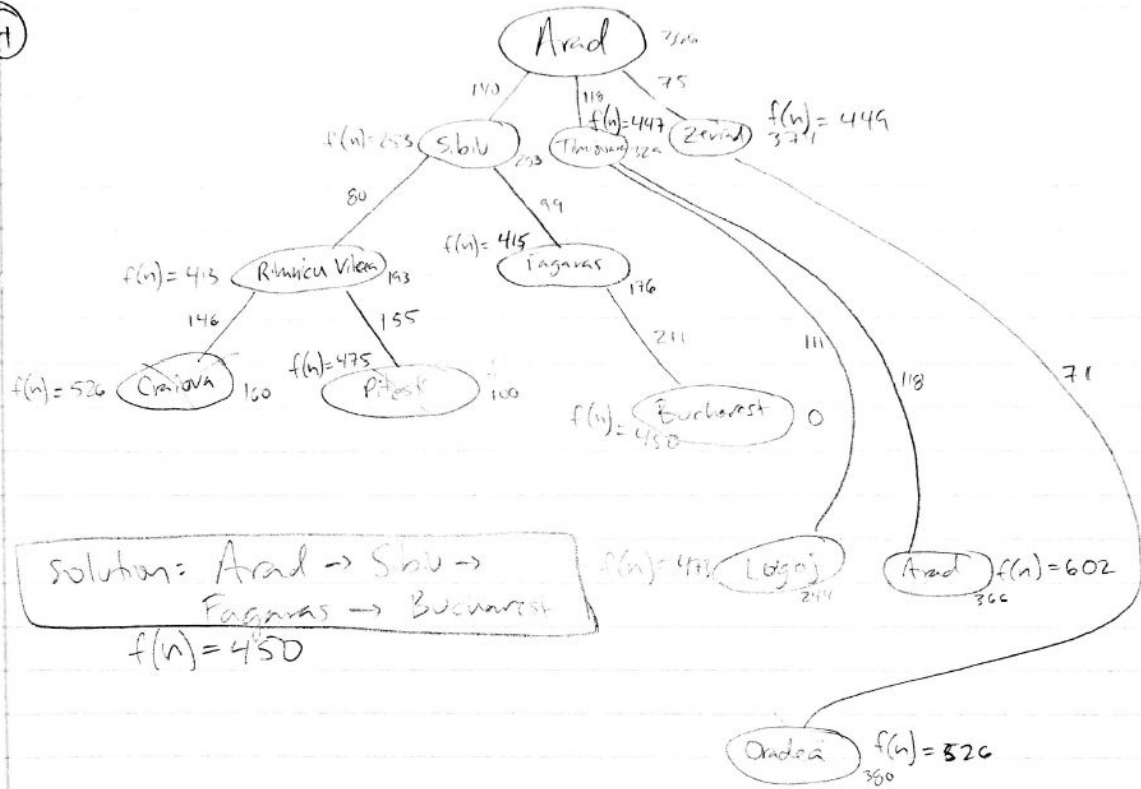 Arad
140
118
75
f(n)=253
Sibiu
253
f(n)=447
329
Zerind
f(n)=449
374
80
99
f(n)=413
Rimnicu Vilcea
193
f(n)=415
Fagaras
176
146
155
211
111
118
71
f(n)=526
Craiova
160
f(n)=475
Pitesti
100
f(n)=450
Bucharest
0
solution: Arad → Sibiu →
Fagaras → Bucharest
f(n)=450
f(n)=473
Lugoj
244
Arad
366
f(n)=602
Oradea
380
f(n)=526